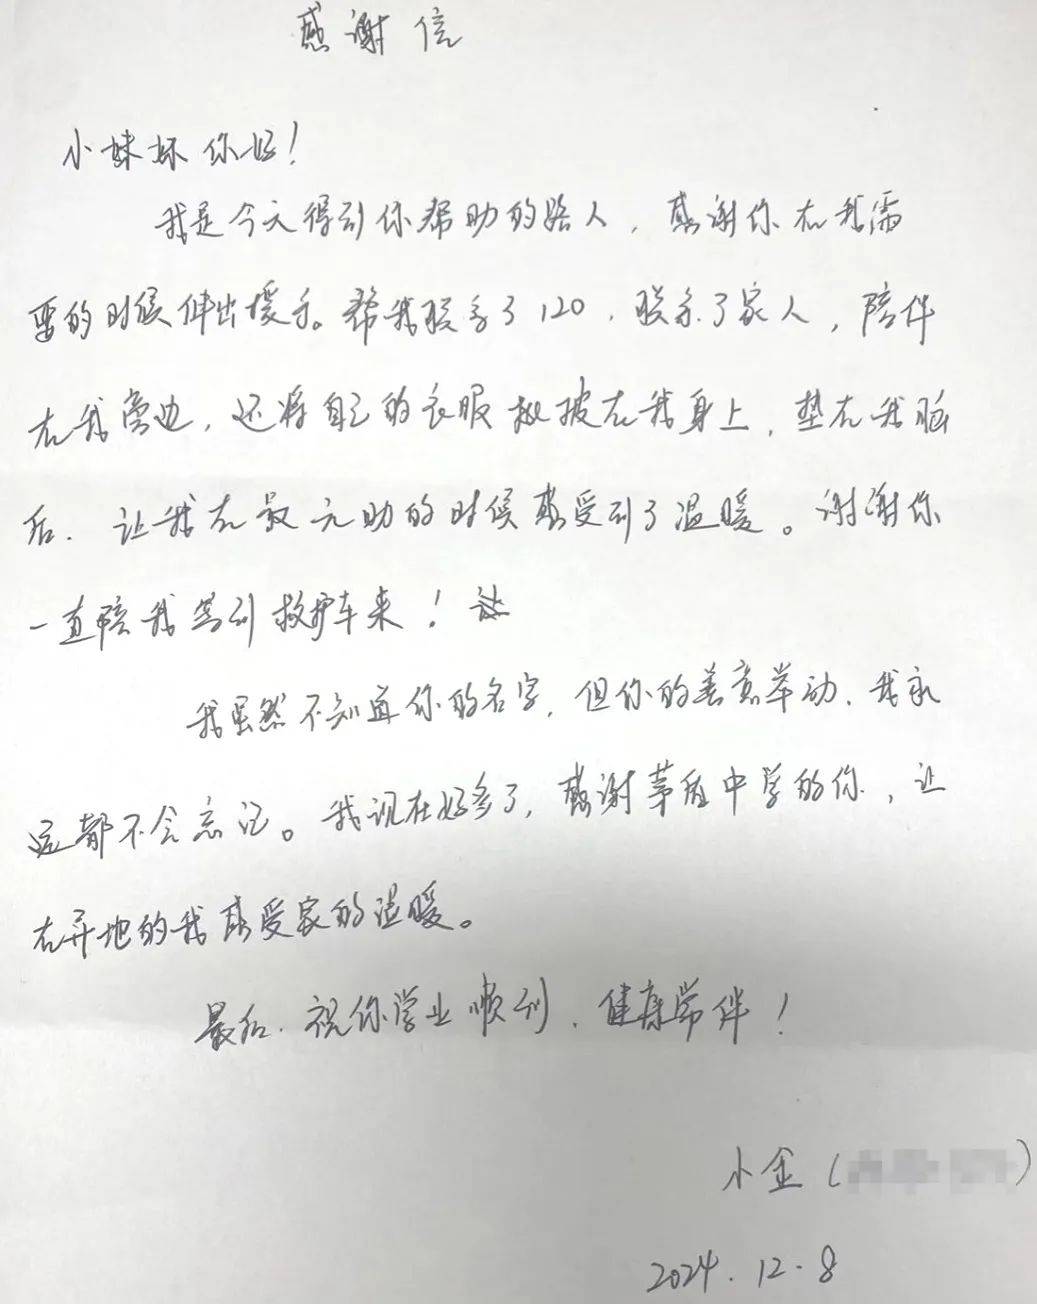 感谢信
小妹妹你好！
我是今天得到你帮助的路人，感谢你在我需
要的时候伸出援手。帮我联系了120，联系了家人，陪伴
在我旁边，还将自己的衣服披在我身上，垫在我脑
后，让我在最无助的时候感受到了温暖。谢谢你
一直陪我等到救护车来！
我虽然不知道你的名字，但你的善意举动，我永
远都不会忘记。我现在好多了，感谢茅盾中学的你，让
在异地的我感受家的温暖。
最后，祝你学业顺利，健康常伴！
小金（
）
2024.12.8